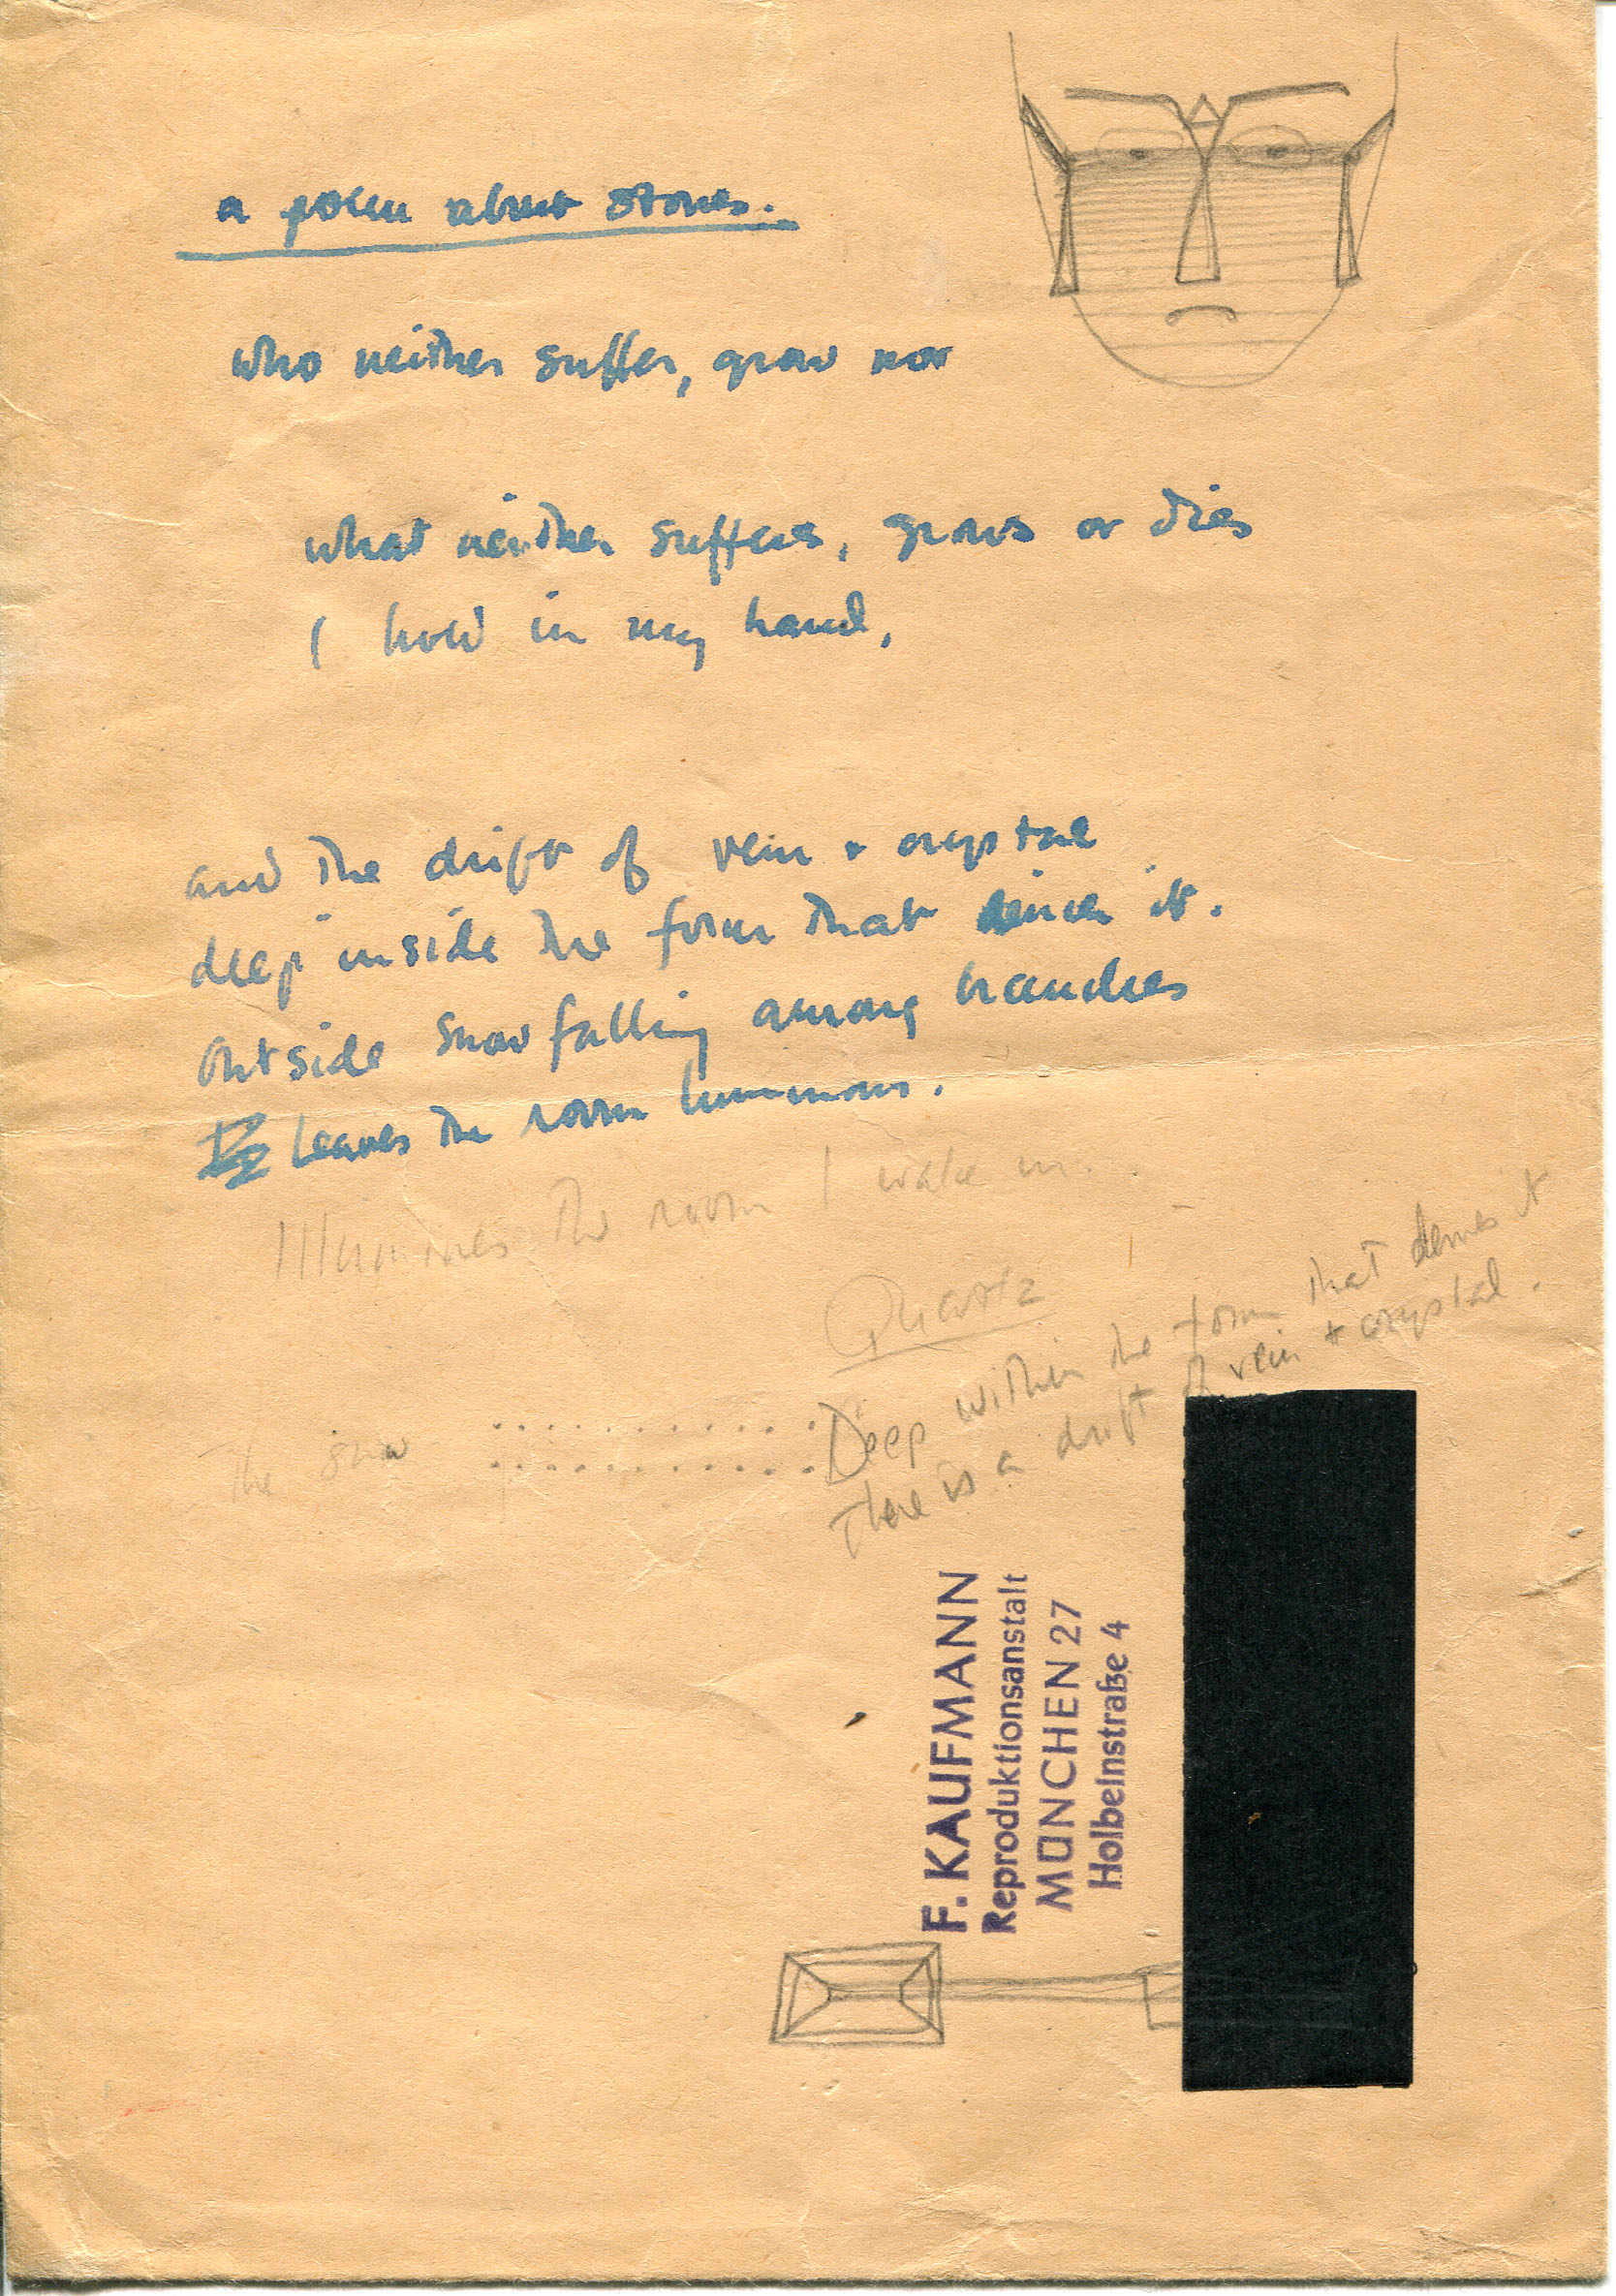 a poem about stones.
who neither suffer, grow nor
what neither suffers, grows or dies
I hold in my hand,
and the drift of vein + crystal
deep inside the form that denies it.
Outside snow falling among branches
Leaves the room luminous.
Illumines the room I wake in.
Quartz
Deep within the form that denies it
There is a drift of vein + crystal.
The snow
F. KAUFMANN
Reproduktionsanstalt
MÜNCHEN 27
Holbeinstraße 4